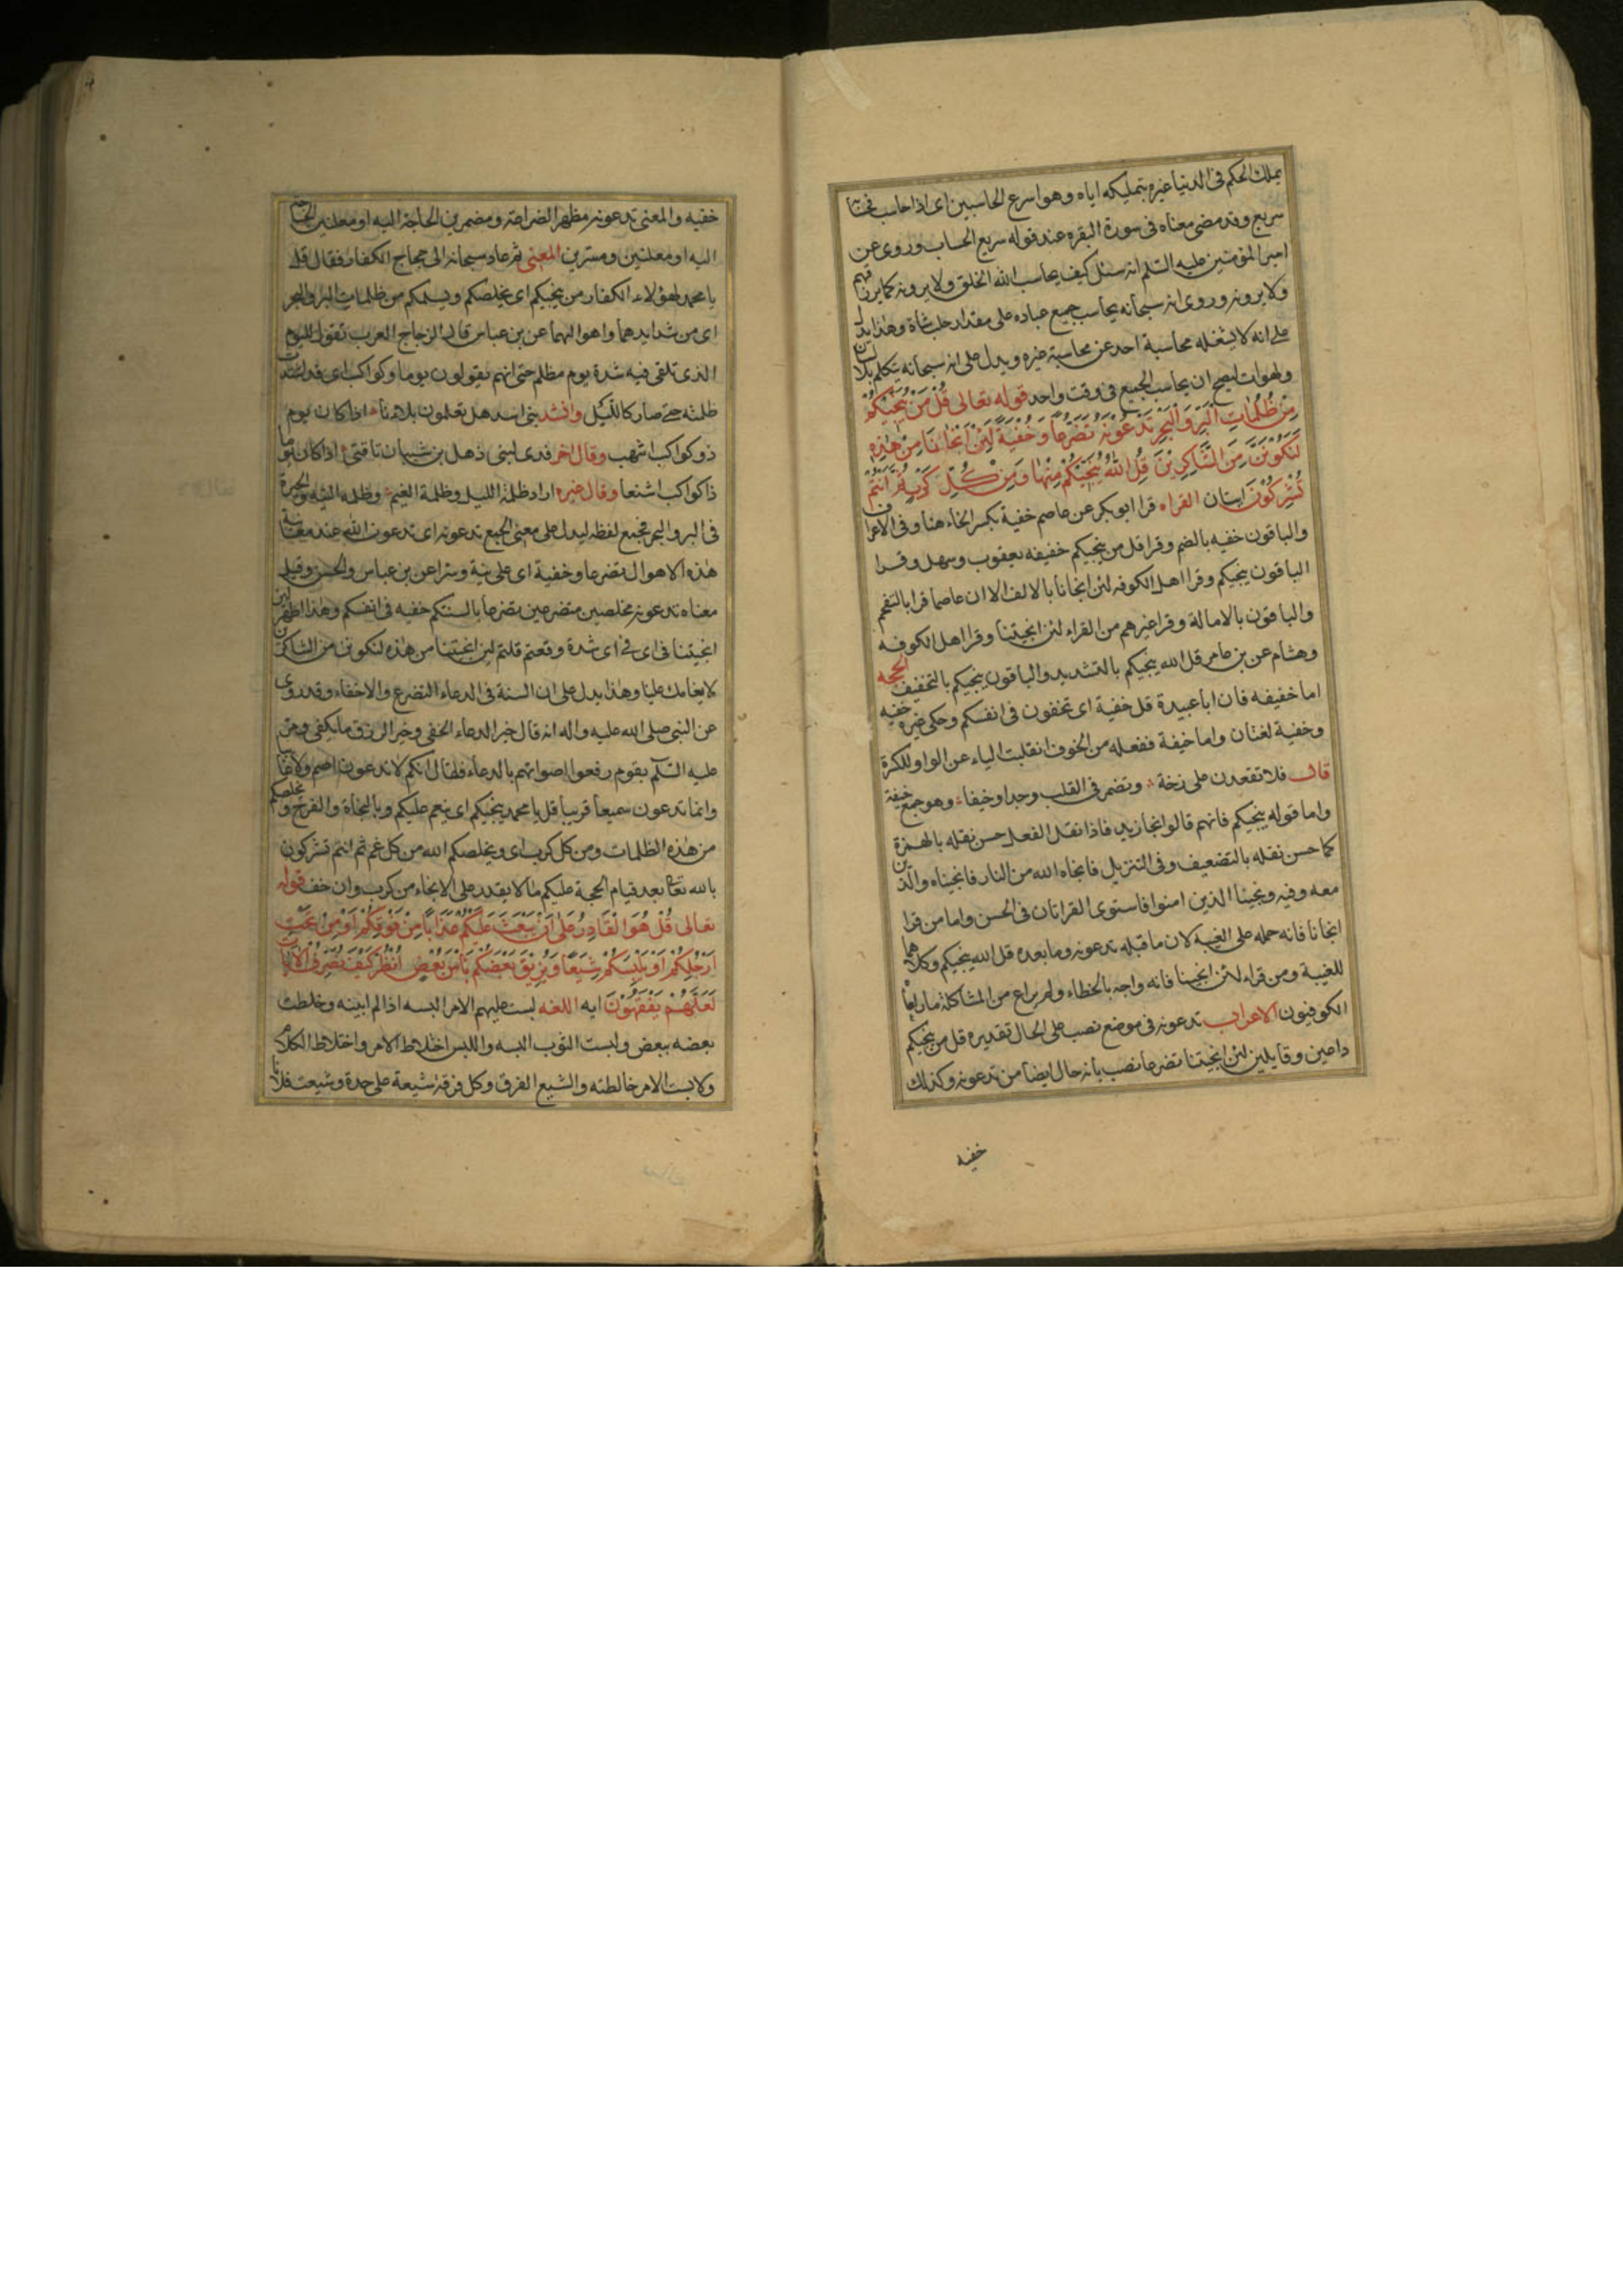 يملك الحكم فى الدنيا غيره بتمليكه اياه وهو اسرع الحاسبين اى اذا حاسب فحسابه
سريع وقد مضى معناه فى سورة البقره عند قوله سريع الحساب وروى عن
امير المؤمنين عليه السلم انه سئل كيف يحاسب الله الخلق ولا يرونه كما يرزقهم
ولا يرونه وروى انه سبحانه يحاسب جميع عباده على مقدار حلب شاة وهذا يدل
على انه لا يشغله محاسبة احد عن محاسبة غيره ويدل على انه سبحانه يتكلم بلا لسان
ولهوات ليصح ان يحاسب الجميع فى وقت واحد قوله تعالى قُلْ مَنْ يُنَجِّيكُمْ
مِنْ ظُلُمَاتِ الْبَرِّ وَالْبَحْرِ تَدْعُونَهُ تَضَرُّعًا وَخُفْيَةً لَئِنْ اَنْجَانَا مِنْ هٰذِهِ
لَنَكُوْنَنَّ مِنَ الشَّاكِرِيْنَ قُلِ اللّٰهُ يُنَجِّيْكُمْ مِنْهَا وَمِنْ كُلِّ كَرْبٍ ثُمَّ اَنْتُمْ
تُشْرِكُوْنَ ايتان القراه قرا ابو بكر عن عاصم خفية بكسر الخاء هنا وفى الاعراف
والباقون خفيه بالضم وقرا قل من ينجيكم خفيفه يعقوب وسهل وقرا
الباقون ينجيكم وقرا اهل الكوفه لئن انجانا بالالف الا ان عاصما قرا بالتفخيم
والباقون بالامالة وقرا غيرهم من القراء لئن انجيتنا وقرا اهل الكوفه
وهشام عن بن عامر قل الله ينجيكم بالتشديد والباقون ينجيكم بالتخفيف الحجه
اما خفيفه فان ابا عبيدة قل خفية اى تخفون فى انفسكم وحكى غيره خفيه
وخفية لغتان واما خيفة ففعله من الخوف انقلبت الياء عن الواو للكسرة
قال فلا تقعدن على زخة وتضمر فى القلب وجدا وخيفا وهو جمع خيفة
واما قوله ينجيكم فانهم قالوا نجا زيد فاذا نقل الفعل حسن نقله بالهمزة
كما حسن نقله بالتضعيف وفى التنزيل فانجاه الله من النار فانجيناه والذين
معه وفيه ونجينا الذين امنوا فاستوى القراتان فى الحسن واما من قرا
انجانا فانه حمله على الغيبة لان ما قبله تدعونه وما بعده قل الله ينجيكم وكلاهما
للغيبة ومن قراء لئن انجيتنا فانه واجه بالخطاء ولم يراع من المشاكلة ما راعاه
الكوفيون الاعراب تدعونه فى موضع نصب على الحال تقديره قل من ينجيكم
داعين وقايلين لئن انجيتنا تضرعا نصب بانه حال ايضا من تدعونه وكذلك
خفيه
خفيه والمعنى تدعونه مظهر الضراعة ومضمرين الحاجة اليه او معلنين الحاجة
اليه او معلنين ومسترين المعنى ثم عاد سبحانه الى حجاج الكفار فقال قل
يا محمد لهؤلاء الكفار من ينجيكم اى يخلصكم ويسلمكم من ظلمات البر والبحر
اى من شدايدهما واهوالهما عن بن عباس قال الزجاج العرب تقول لليوم
الذى تلقى فيه شدة يوم مظلم حتى انهم يقولون يوما وكواكب اى قد اشتدت
ظلمته حتى صار كالليل وانشد بنى اسد هل تعلمون بلاءنا اذا كان يوم
ذو كواكب اشهب وقال اخر فدى لبنى ذهل بن شيبان ناقتى اذا كان يوما
ذا كواكب اشنعا وقال غيره اراد ظلمة الليل وظلمة الغيم وظلمة التيه والحيرة
فى البر والبحر فجمع لفظه ليدل على معنى الجمع تدعونه اى تدعون الله عند معاينة
هذه الاهوال تضرعا وخفية اى علانية وسرا عن بن عباس والحسن وقيل
معناه تدعونه مخلصين متضرعين تضرعا بالسنتكم خفيه فى انفسكم وهذا اظهر لئن
انجيتنا فى اى فى اى شدة وقعتم قلتم لئن انجيتنا من هذه لنكونن من الشاكرين
لانعامك علينا وهذا يدل على ان السنة فى الدعاء التضرع والاخفاء وقد روى
عن النبى صلى الله عليه واله انه قال خير الدعاء الخفى وخير الرزق ما يكفى ومر
عليه السلم بقوم رفعوا اصواتهم بالدعاء فقال انكم لا تدعون اصم ولا غايبا
وانما تدعون سميعا قريبا قل يا محمد ينجيكم اى ينعم عليكم وبالنجاة والفرج و يخلصكم
من هذه الظلمات ومن كل كرب اى ويخلصكم الله من كل غم ثم انتم تشركون
بالله تعالى بعد قيام الحجة عليكم ما لا يقدر على الانجاء من كرب وان خف قوله
تعالى قُلْ هُوَ الْقَادِرُ عَلىٰ اَنْ يَبْعَثَ عَلَيْكُمْ عَذَابًا مِنْ فَوْقِكُمْ اَوْ مِنْ تَحْتِ
اَرْجُلِكُمْ اَوْ يَلْبِسَكُمْ شِيَعًا وَيُذِيْقَ بَعْضَكُمْ بَأْسَ بَعْضٍ اُنْظُرْ كَيْفَ نُصَرِّفُ الْاٰيَاتِ
لَعَلَّهُمْ يَفْقَهُوْنَ ايه اللغه لبست عليهم الامر البسه اذا لم ابينه وخلطت
بعضه ببعض ولبست الثوب البسه واللبس اختلاط الامر واختلاط الكلام
ولابست الامر خالطته والشيع الفرق وكل فرقة شيعة على حدة وشيعت فلانا